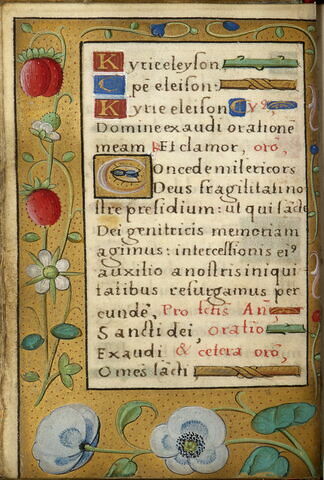 Kyrieleyson
Xpē eleison:
Kyrie eleison
Domine exaudi orationē
meam Et clamor, orō,
Concede misericors
Deus fragilitati no
stre presidium: ut qui sācte
Dei genitricis memoriam
agimus: intercessionis ei⁹
auxilio a nostris iniqui
tatibus resurgamus per
eundē, Pro
Sancti dei, oratio
Exaudi & cetera orō,
Omēs sācti